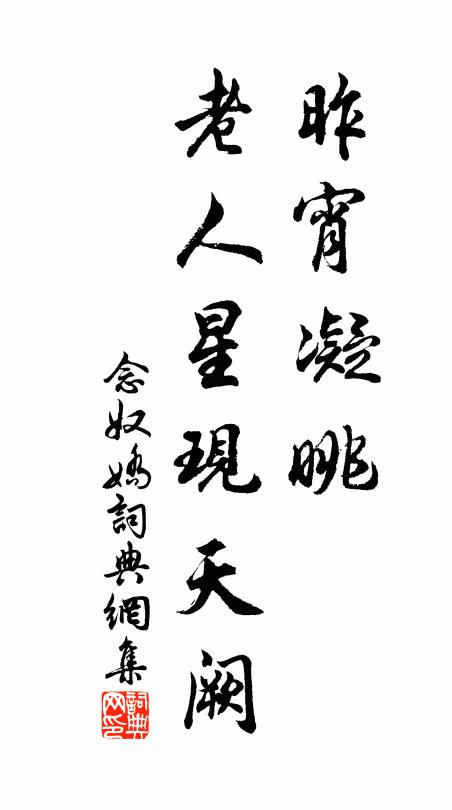 昨宵凝眺
老人星現天闕
念奴嬌詞典網集
詞典網印